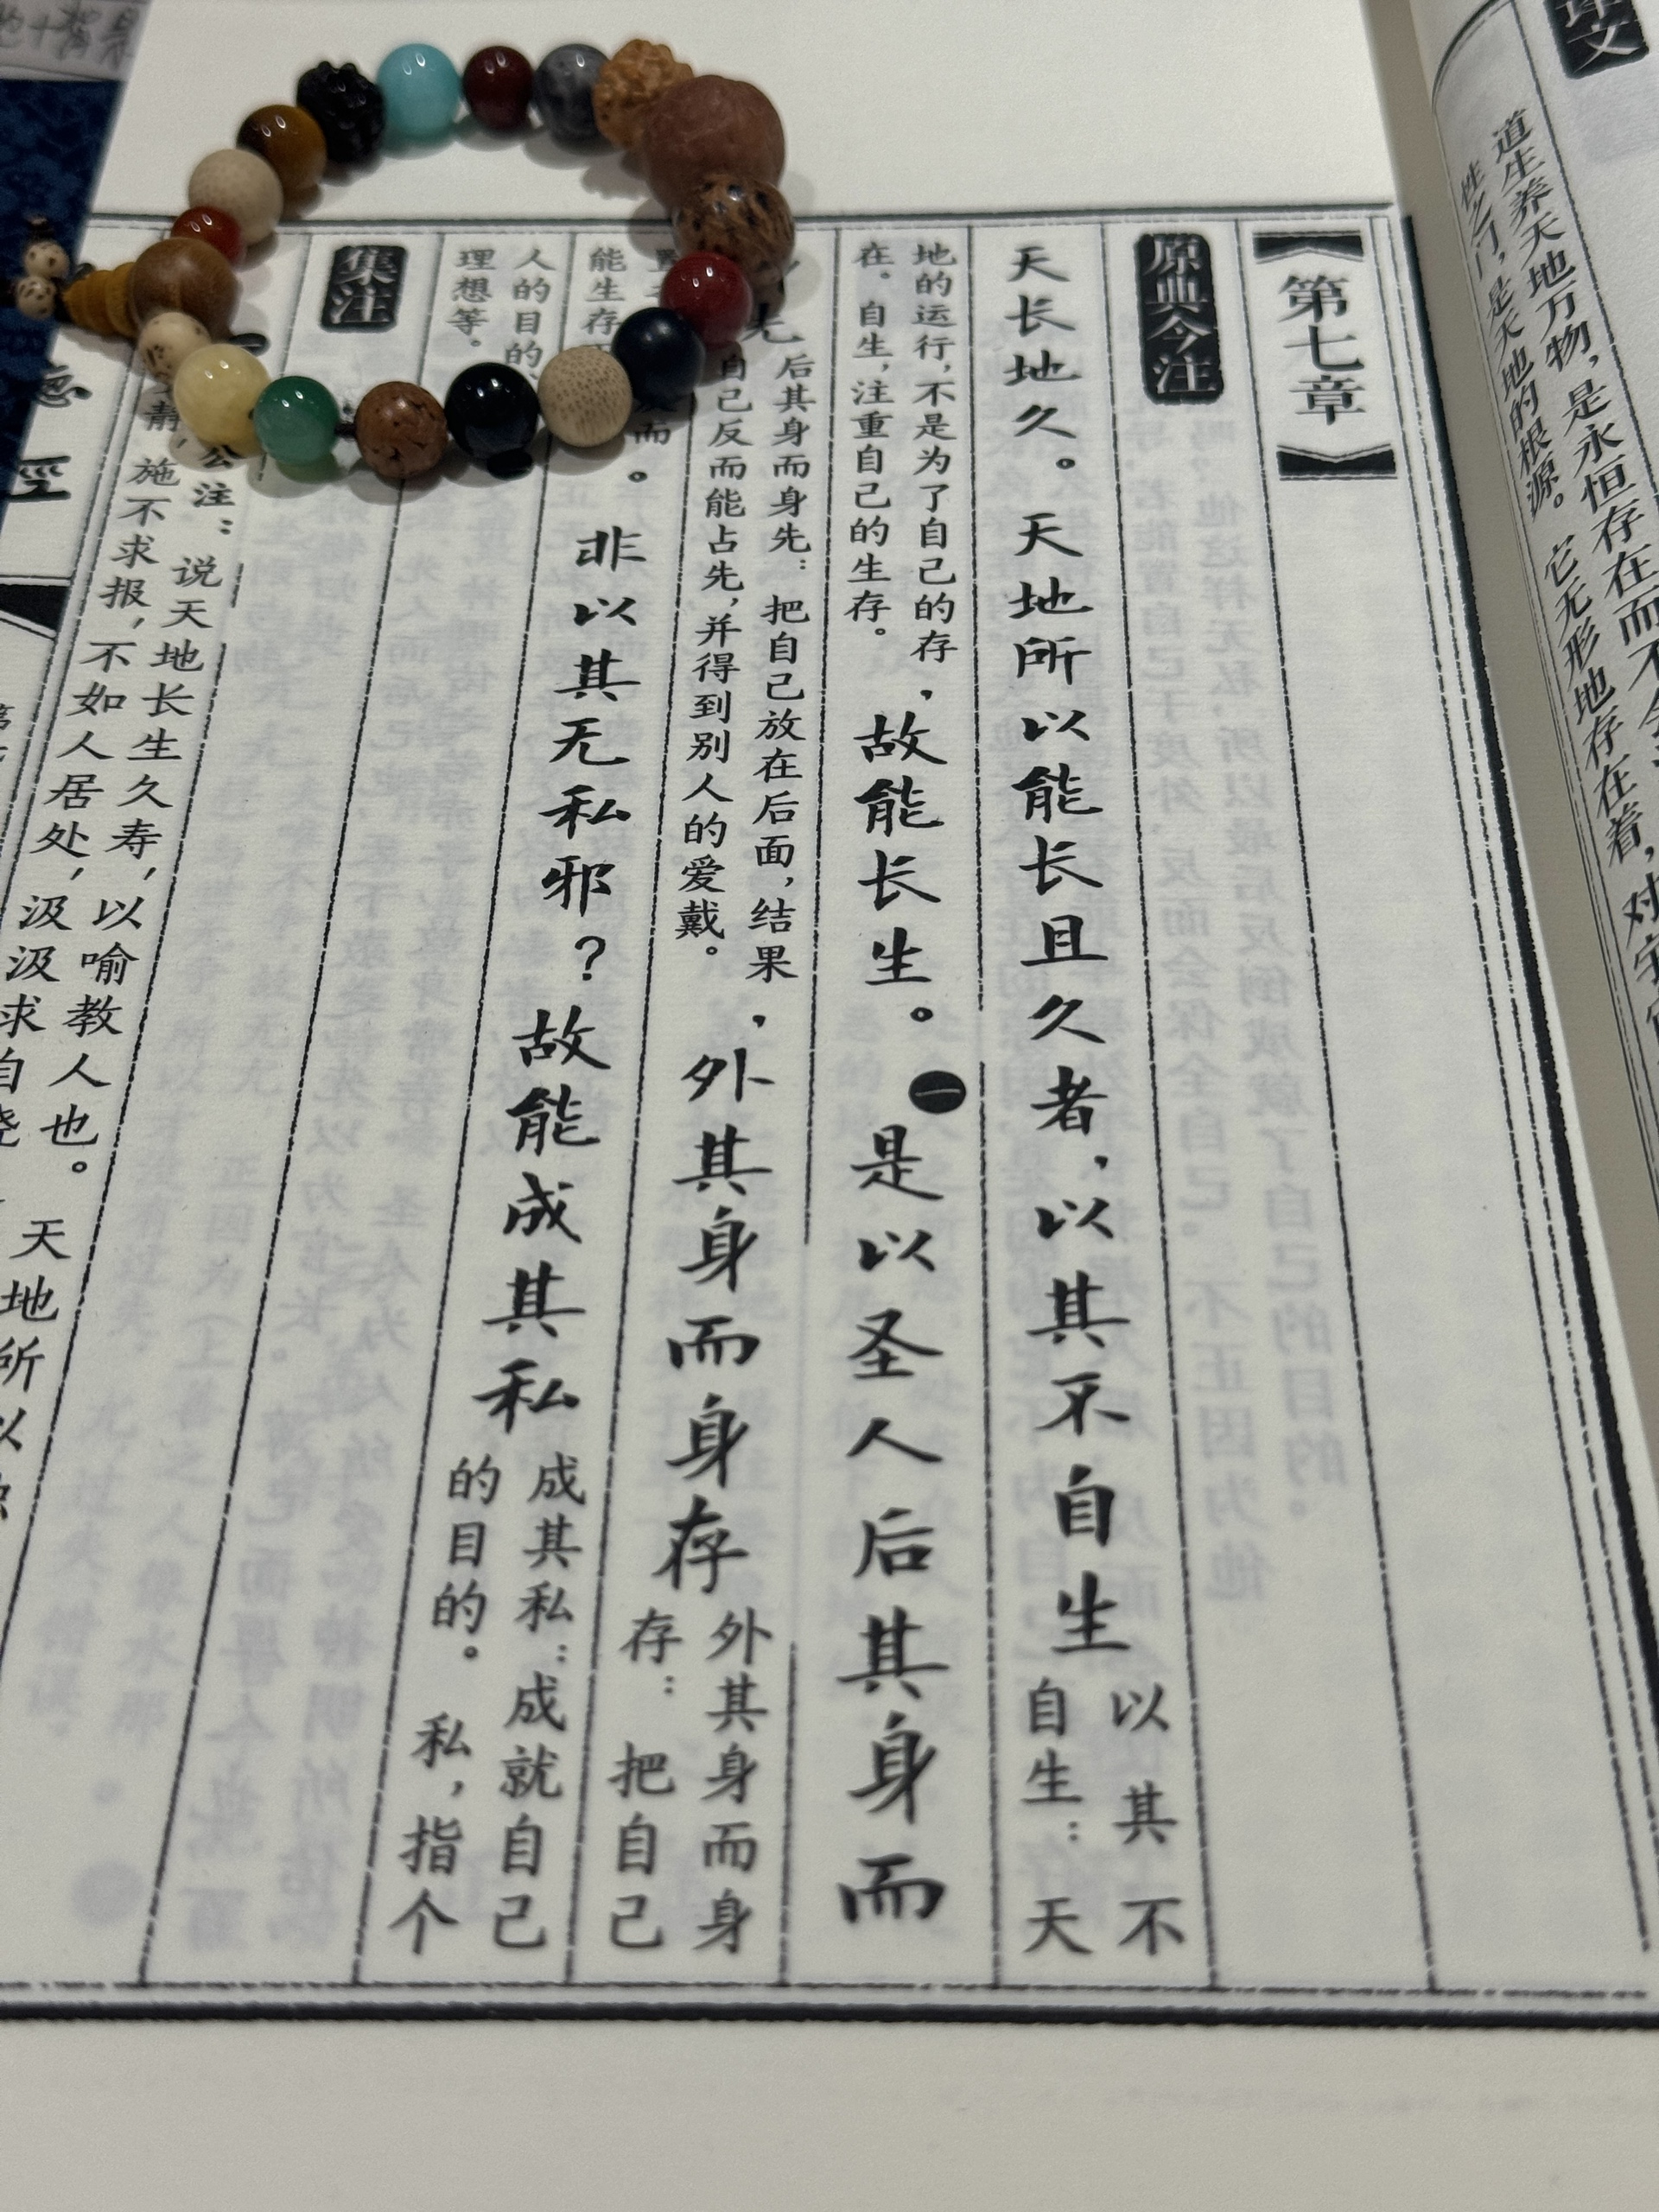 译文
道生养天地万物，是永恒存在而不会
性之门，是天地的根源。它无形地存在着，对宇宙
第七章
原典今注
天长地久。天地所以能长且久者，以其不自生
以其不
自生：天
地的运行，不是为了自己的存
在。自生，注重自己的生存。
，故能长生。一是以圣人后其身而
后其身而身先：把自己放在后面，结果
自己反而能占先，并得到别人的爱戴。
，外其身而身存
外其身而身
存：把自己
能生存
。非以其无私邪？故能成其私
成其私：成就自己
的目的。私，指个
人的目的
理想等。
集注
公注：说天地长生久寿，以喻教人也。天地所以
静，施不求报，不如人居处，汲汲求自
經